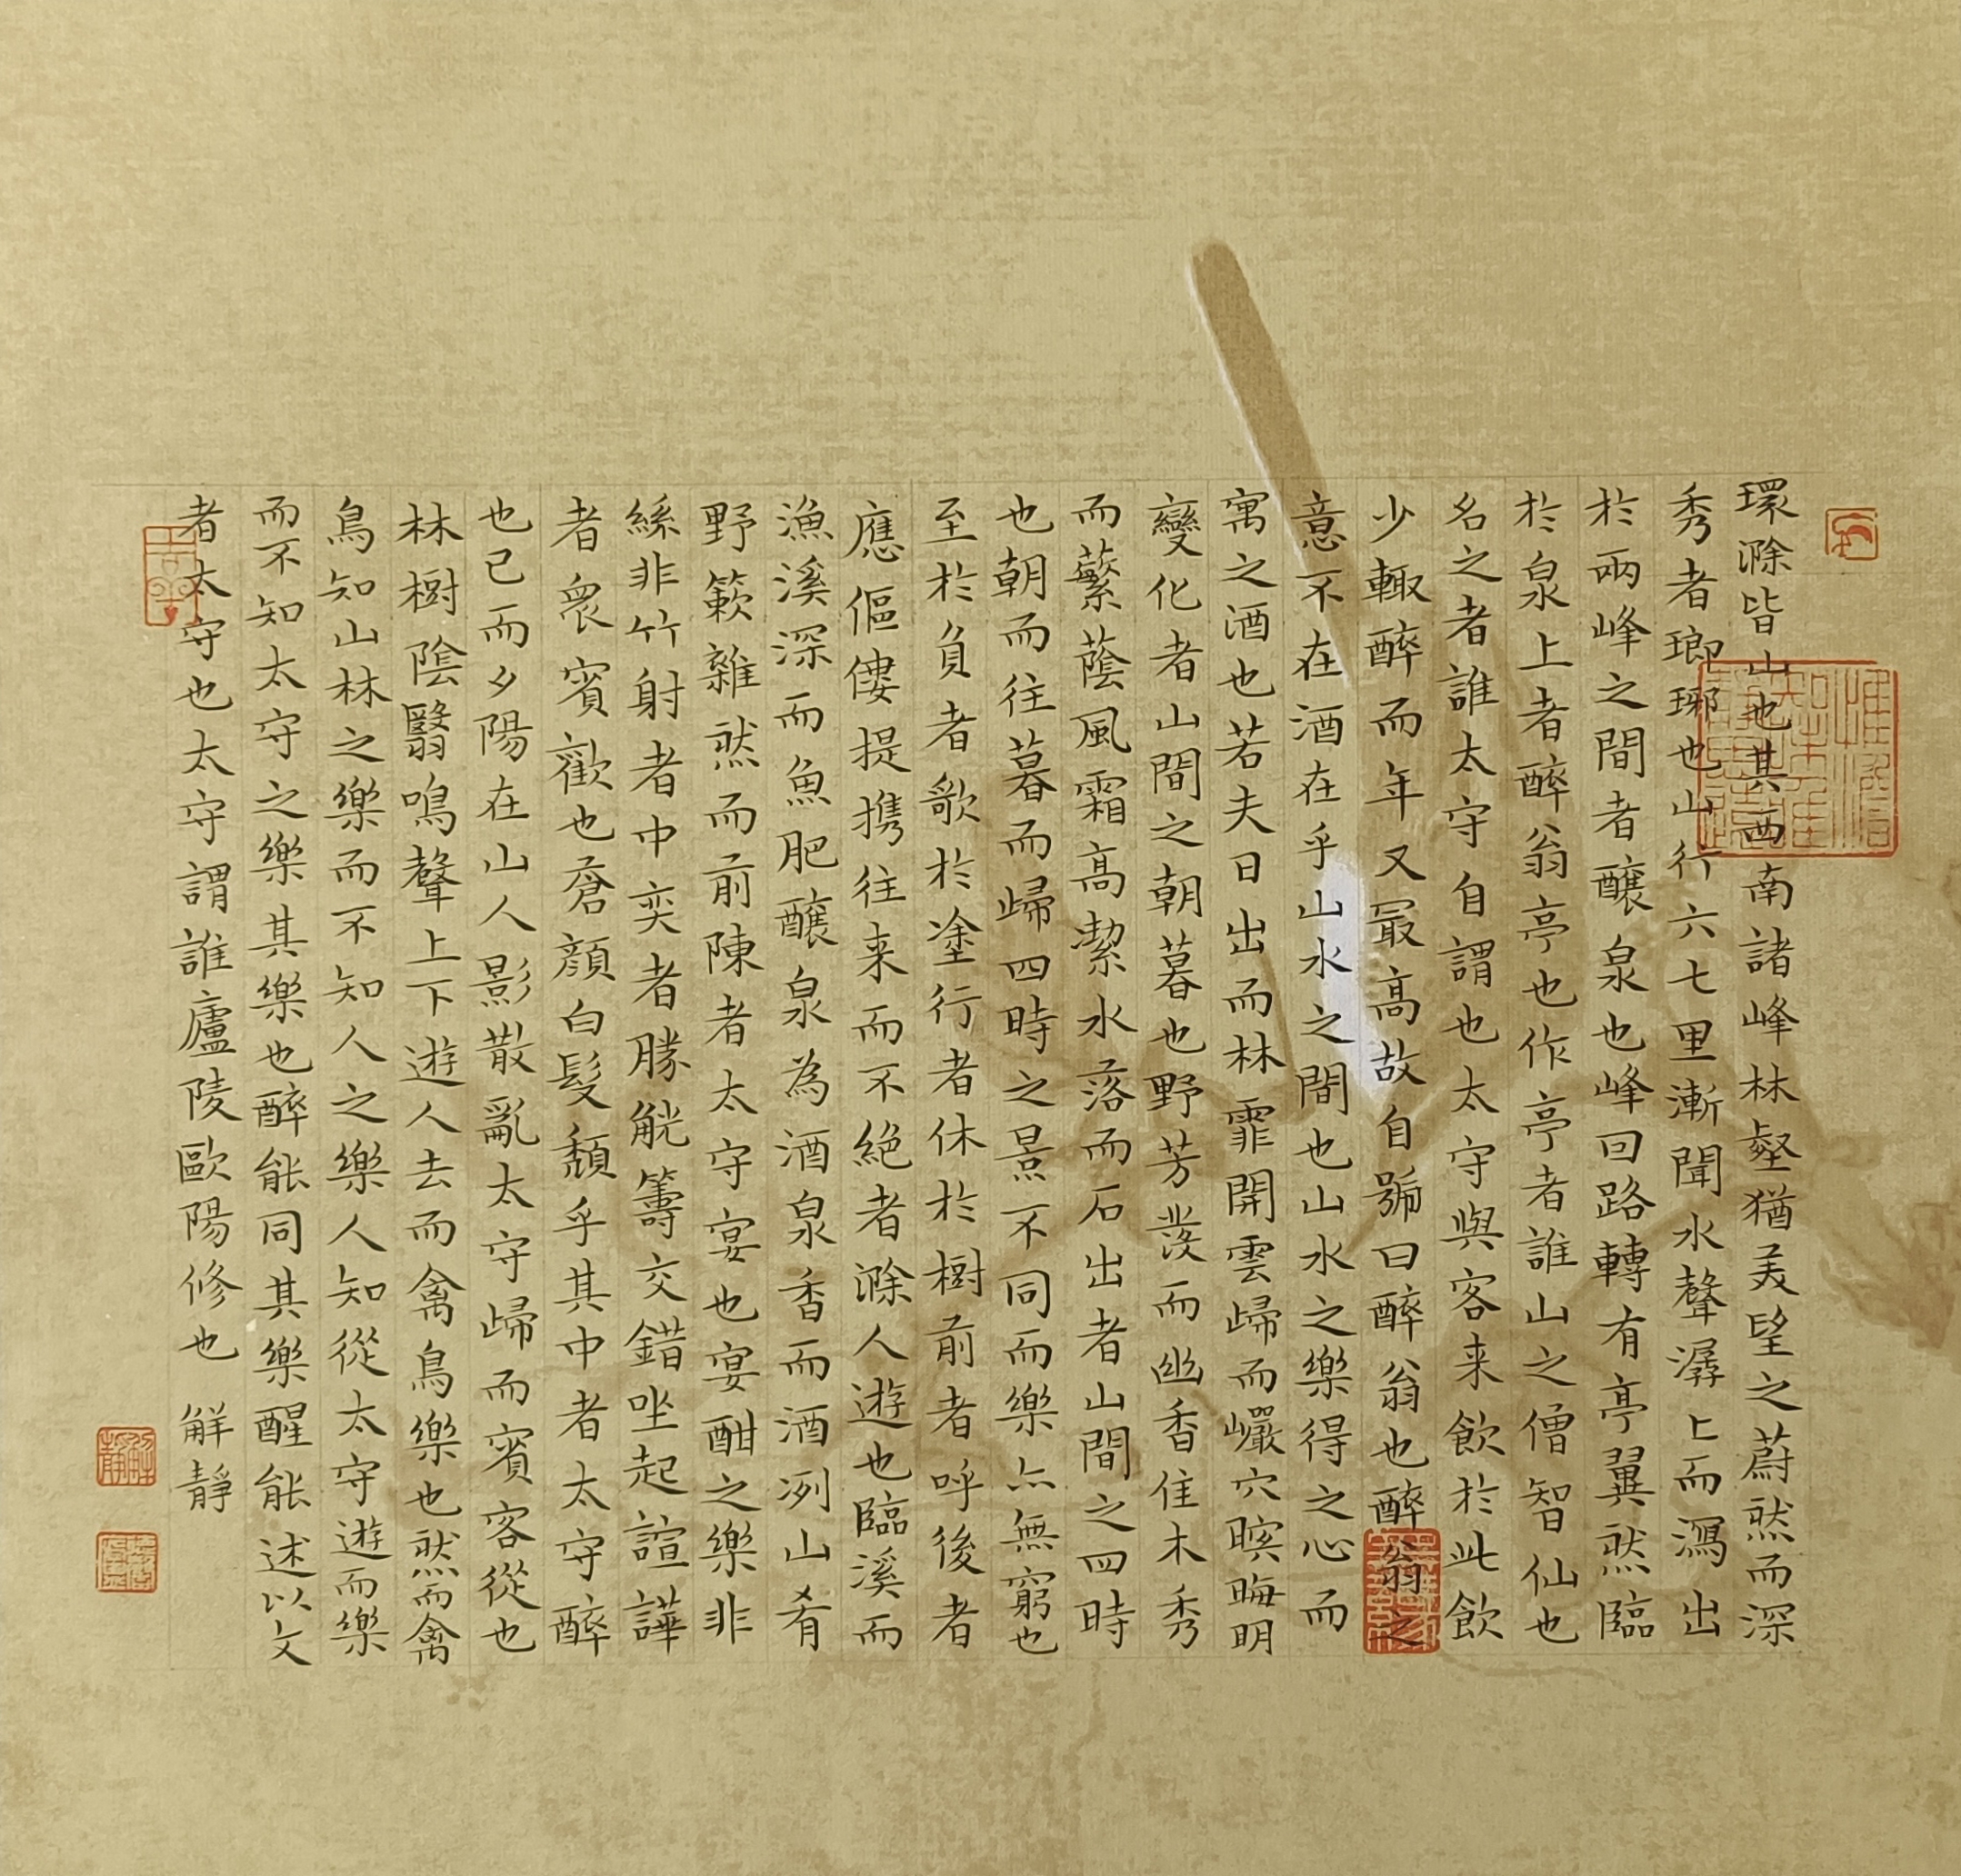 環滁皆山也其西南諸峰林壑猶美望之蔚然而深
秀者瑯琊也山行六七里漸聞水聲潺上而瀉出
於兩峰之間者釀泉也峰回路轉有亭翼然臨
於泉上者醉翁亭也作亭者誰山之僧智仙也
名之者誰太守自謂也太守與客来飲於此飲
少輙醉而年又最高故自號曰醉翁也醉翁之
意不在酒在乎山水之間也山水之樂得之心而
寓之酒也若夫日出而林霏開雲歸而巖穴暝晦明
變化者山間之朝暮也野芳發而幽香佳木秀
而蘩蔭風霜高潔水落而石出者山間之四時
也朝而往暮而歸四時之景不同而樂亦無窮也
至於負者歌於塗行者休於樹前者呼後者
應傴僂提携往来而不絕者滁人遊也臨溪而
漁溪深而魚肥釀泉為酒泉香而酒洌山肴
野簌雜然而前陳者太守宴也宴酣之樂非
絲非竹射者中奕者勝觥籌交錯坐起諠譁
者衆賓歡也蒼顏白髮頹乎其中者太守醉
也已而夕陽在山人影散亂太守歸而賓客從也
林樹陰翳鳴聲上下遊人去而禽鳥樂也然而禽
鳥知山林之樂而不知人之樂人知從太守遊而樂
而不知太守之樂其樂也醉能同其樂醒能述以文
者太守也太守謂誰廬陵歐陽修也 解靜